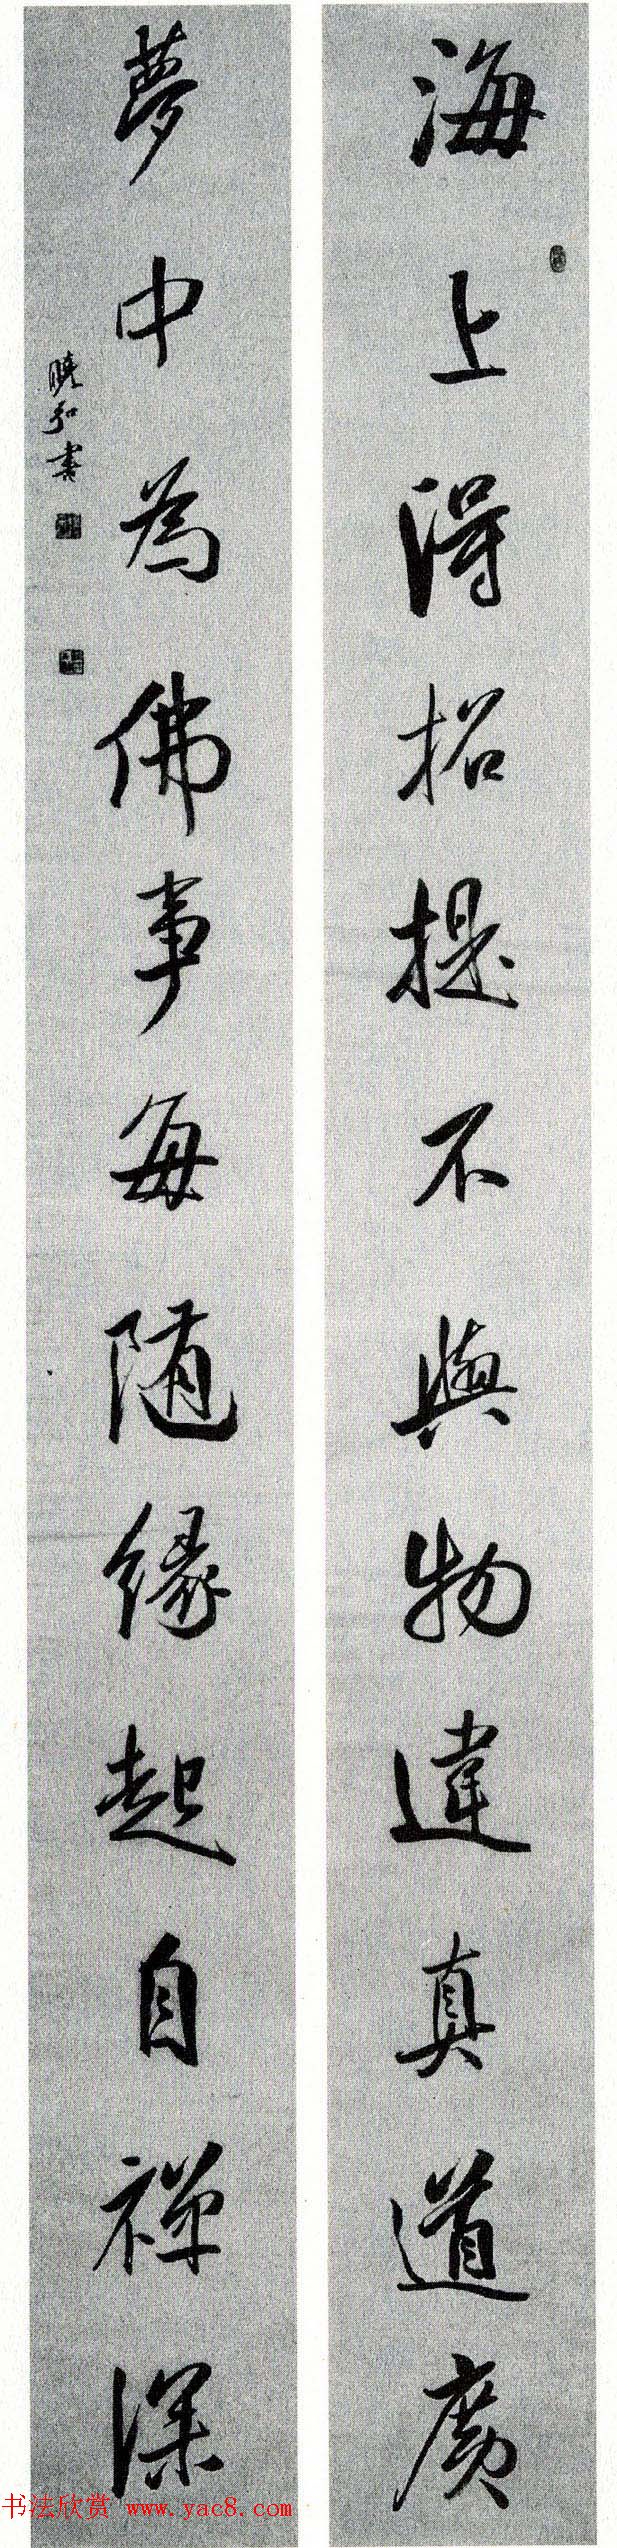 海上得招提不與物違真道廣
夢中為佛事每隨緣起自禪深
曉初書
书法欣赏 www.yac8.com